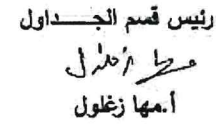 رئيس قسم الجـــداول
مها زغلول
أ.مها زغلول